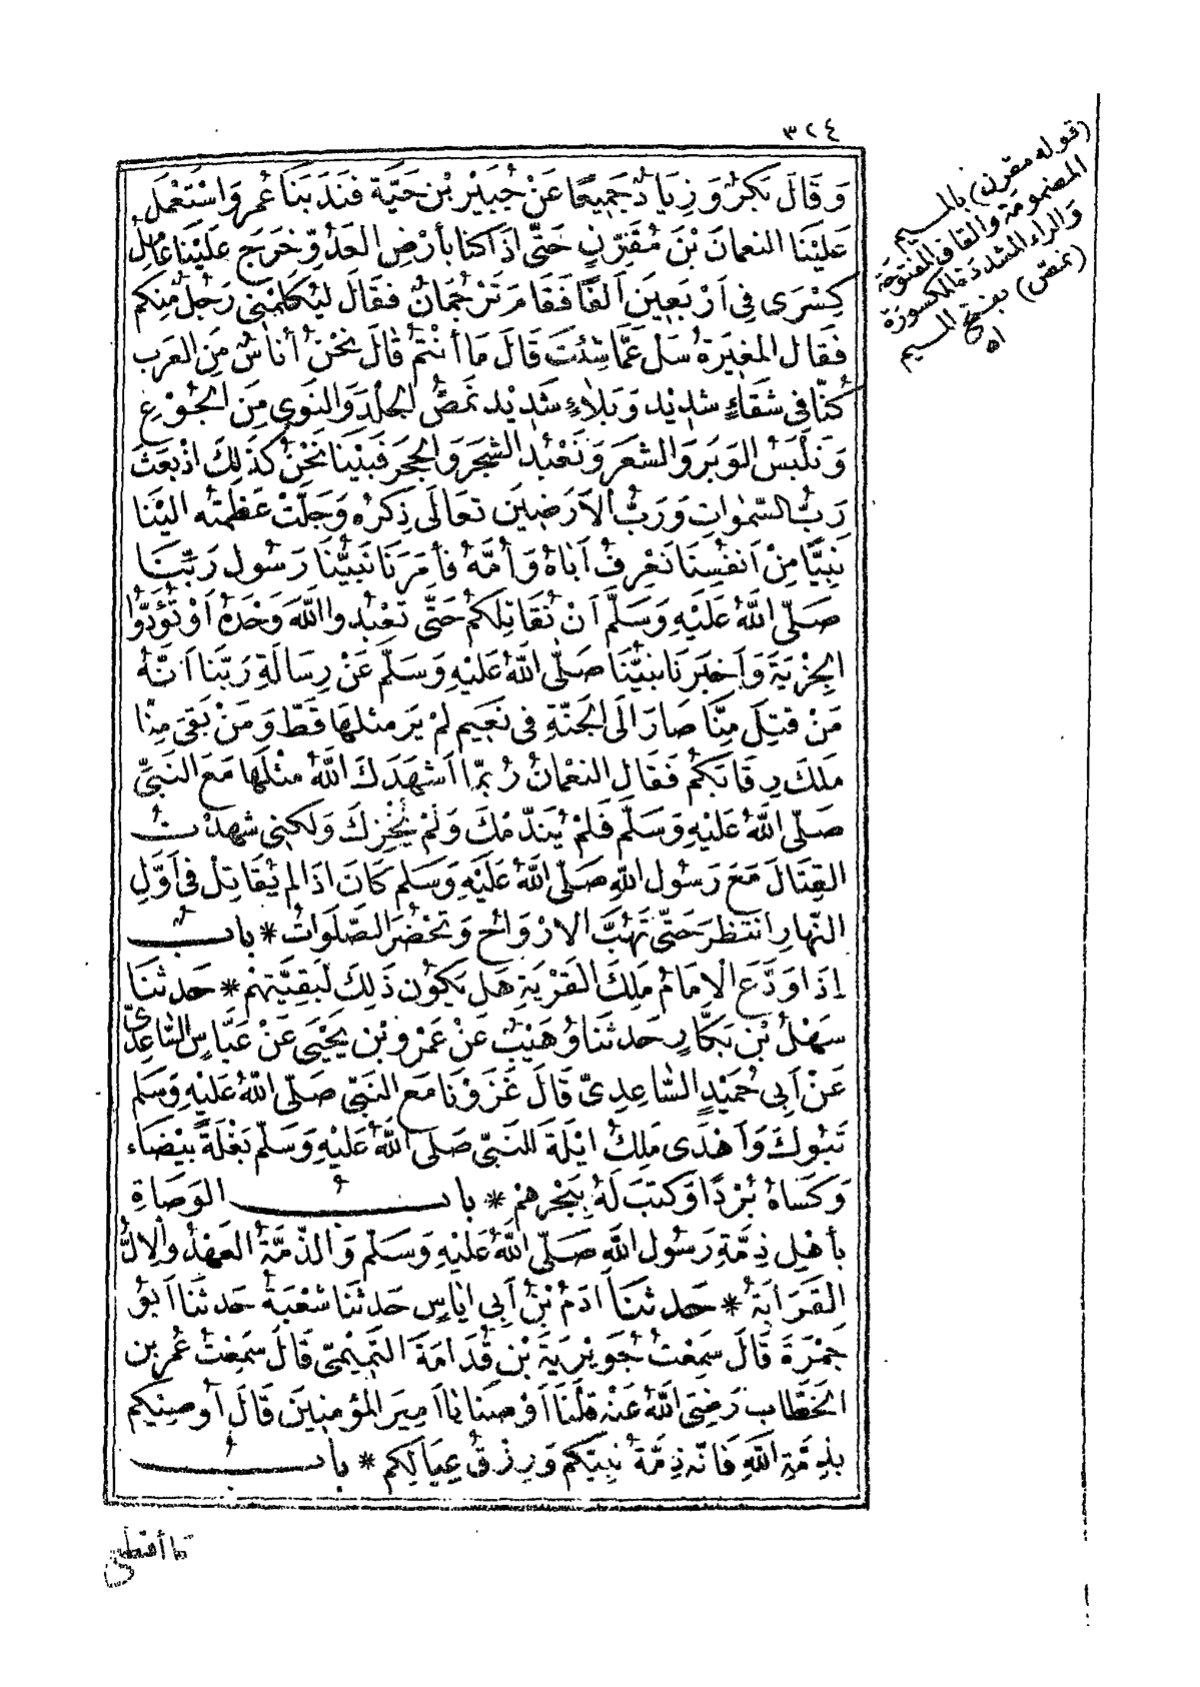 ٣٢٤
وَقَالَ بَكْرٌ وَزِيَادٌ جَمِيعًا عَنْ جُبَيْرِ بْنِ حَيَّةَ فَنَدَبَنَا عُمَرُ وَاسْتَعْمَلَ
عَلَيْنَا النعمانَ بْنَ مُقَرِّنٍ حَتَّى اذَا كنا بأَرْضِ العَدُوِّ خرَجَ عَلَيْنَا عَامِلُ
كِسْرَى فِى اَرْبَعِينَ اَلْفًا فَقَامَ تَرْجُمَانٌ فقَالَ لِيُكَلِّمْنِى رَجُلٌ مِنكم
فقَال المغِيَرةُ سَلْ عَمَّا شِئتَ قَالَ مَا أنْتُم قَالَ نحْنُ أُناسٌ مِنَ العَرب
كُنّا فى شقَاءٍ شدِيْدٍ وَبَلاءٍ شَدِيْدٍ نَمَصُّ الجلْدَ وَالنَّوَى مِنَ الجُوْعِ
وَنَلْبَسُ الوَبَرَ وَالشعَرَ وَنَعْبُد الشجَرَ وَالحجَرَ فبَيْنَا نَحْنُ كَذلِكَ اذْ بَعَثَ
رَبُّ السّمٰوَاتِ وَرَبُّ الاَرَضِيَن تعَالَى ذِكْرُه وَجَلَّتْ عَظَمَتُه الَيْنَا
نَبِيًّا مِنْ اَنفُسِنَا نَعْرِفُ اَبَاهُ وَأُمَّهُ فأَمَرَنَا نَبِيُّنَا رَسُول رَبِّنَا
صَلَّى اللّهُ عَلَيْهِ وَسَلَّمَ اَنْ نُقَاتِلَكُمْ حَتَّى تَعْبُدوا اللّهَ وَحْدَهُ اَوْ تُؤَدُّوا
الجِزْيَةَ وَأَخبَرَنَا نبِيُّنَا صَلَّى اللّهُ عَلَيْهِ وَسَلَّمَ عَنْ رِسَالَةِ رَبِّنا اَنَّهُ
مَنْ قتِلَ مِنَّا صَارَ الَى الجَنّةِ فى نَعِيم لمْ يَر مثلَهَا قَطّ وَمَنْ بَقىَ مِنَّا
مَلكَ رِقَابَكُم فَقَال النعْمَانُ رُبمَّا اَشهَدَكَ اللّهُ مثْلَهَا مَعَ النَّبِىِّ
صَلّى اللّهُ عَلَيْهِ وَسَلَّمَ فَلَمْ يُنَدّمْكَ وَلَمْ يُخْزِكَ وَلكنِى شهِدْتُ
القِتَالَ مَعَ رَسُول اللهِ صَلّى اللّهُ عَلَيْهِ وَسَلم كَانَ اذَا لم يُقَاتِلْ فى أَوَّلِ
النّهارِ انتظرَ حَتَّى تَهُبَّ الارْوَاحُ وَتحْضُرَ الصَّلَواتُ * بابُ
إِذا وَدَّعَ الاِمَامُ مَلِكَ القَرْيَةِ هَل يَكوُن ذَلِكَ لبَقِيَّتِهمْ * حَدثنَا
سَهْلُ بْن بَكَّارٍ حَدثنَا وُهَيْبٌ عَنْ عَمْرِو بْن يَحْيَى عَنْ عَبَّاسٍ السَّاعِدِىِّ
عَنْ اَبى حُمَيْدٍ السَّاعِدِىِّ قَالَ غَزَوْنَا مَعَ النَبِىّ صَلّى اللّهُ عَلَيْهِ وَسَلم
تَبُوكَ وَاَهْدَى مَلِكُ ايْلَةَ للنَبِىّ صَلى اللّهُ عَلَيْهِ وَسَلّم بَغْلَةً بَيْضَاء
وَكَسَاهُ بُرْدًا وَكتبَ لَهُ بِبَحْرِهمْ * بابُ الوَصَاةِ
بأَهْلِ ذِمَّةِ رَسُول اللّهِ صَلّى اللّهُ عَلَيْهِ وَسَلّم وَالذّمَّةُ العَهْدُ وَالاِلُّ
القَرَابَةُ * حَدثنَا اَدَمُ بْنُ أَبى ايَاسٍ حَدثنَا شعْبَةُ حَدثنَا اَبُو
جمْرَةَ قَالَ سَمِعْتُ جُوَيْرِيَةَ بْن قُدَامَةَ التَّمِيمىّ قَالَ سَمِعْتُ عُمَر بن
الخَطَّاب رَضِىَ اللّهُ عَنْه قلْنَا أَوْصِنَا يا اَمِيَر المؤمِنِينَ قَالَ أُوصِيْكم
بذِمَّةِ اللّهِ فَانّه ذِمَّةُ نبِيّكم وَرِزْقُ عِيَالِكم * بابُ
(قوله مقرن) بالميم
المضمومة والقاف المفتوحة
والراء المشددة المكسورة
(نمصّ) بفتح الميم
اه
ما أقطع